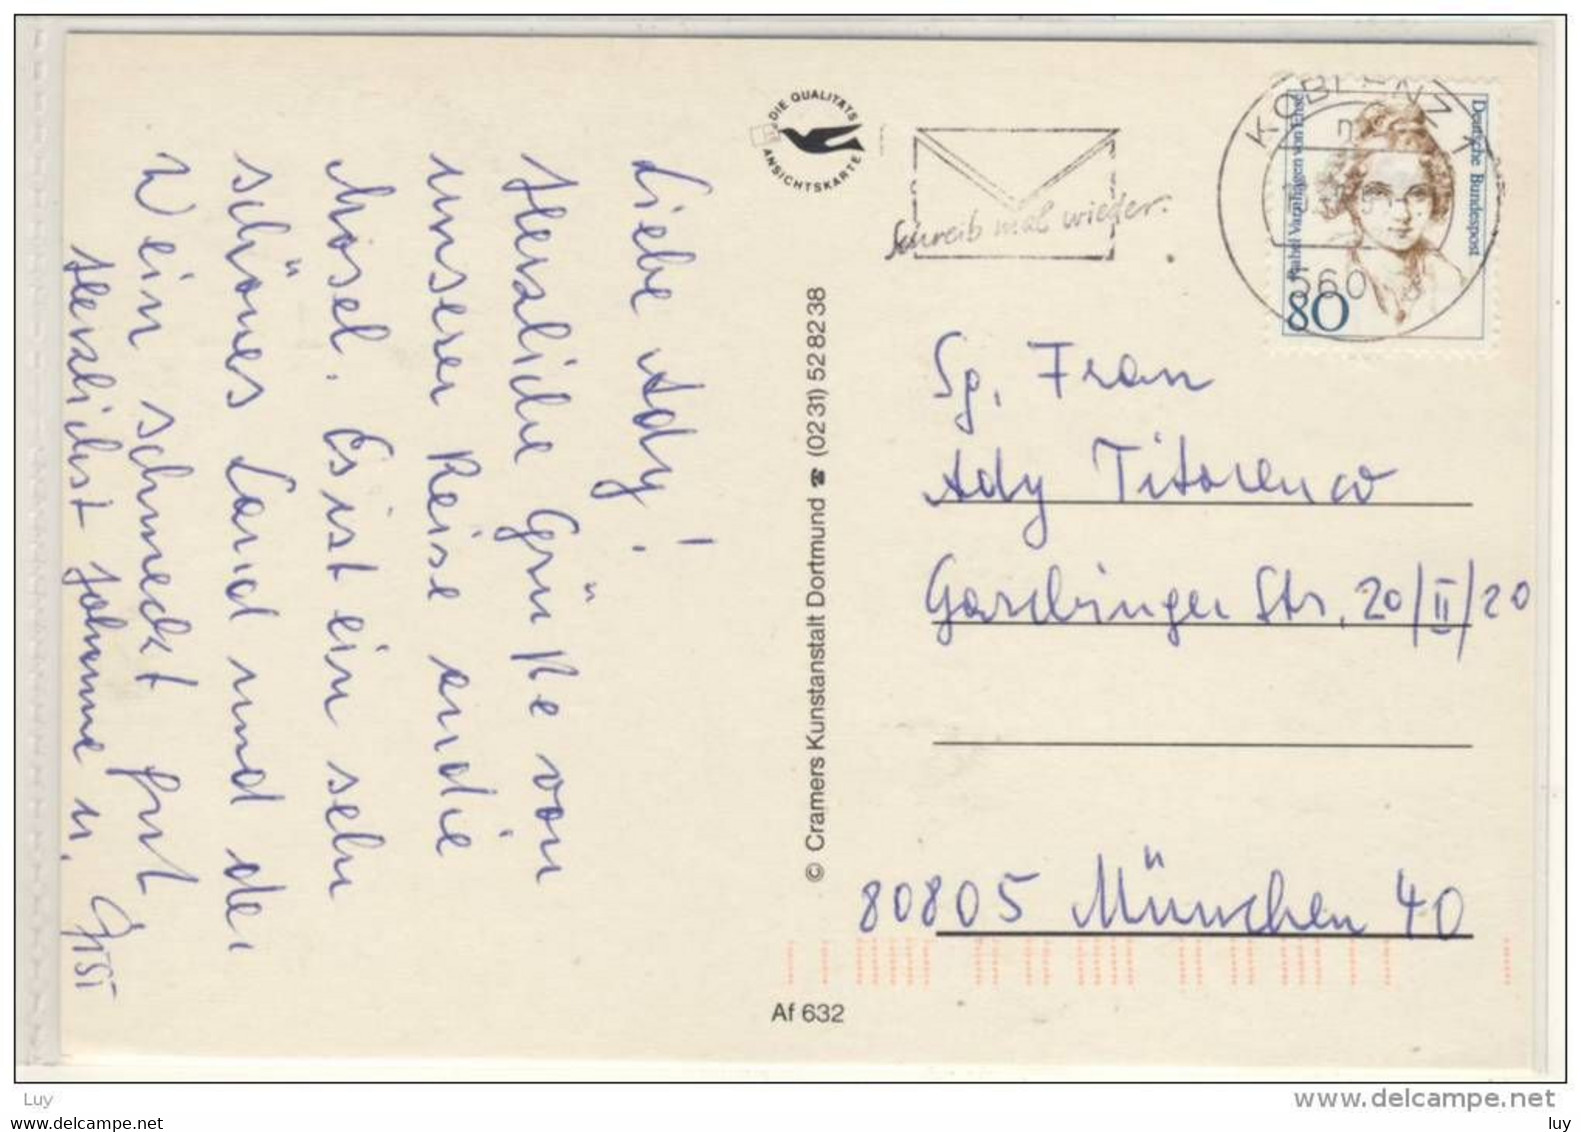 Liebe Ady!
Herzliche Grüße von
unserer Reise an die
Mosel. Es ist ein sehr
schönes Land und der
Wein schmeckt gut
Herzlichst Johanna u. Gissi
DIE QUALITÄTS
ANSICHTSKARTE
Schreib mal wieder.
KOBLENZ 1
560
Deutsche Bundespost
Rahel Varnhagen von Ense
80
© Cramers Kunstanstalt Dortmund ☎ (02 31) 52 82 38
Sg. Frau
Ady Titorenco
Garchinger Str. 20/II/20
80805 München 40
Af 632
Luy
www.delcampe.net
luy www.delcampe.net
luy